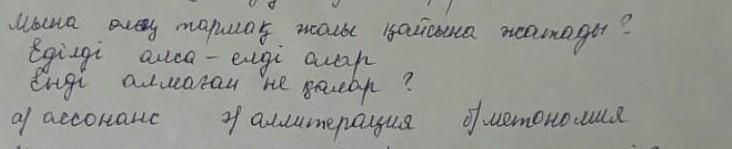 Мына өлең тармақ жолы қайсына жатады?
Еділді алса - елді алар
Енді алмаған не қалар?
а) ассонанс ә) аллитерация б) метономия